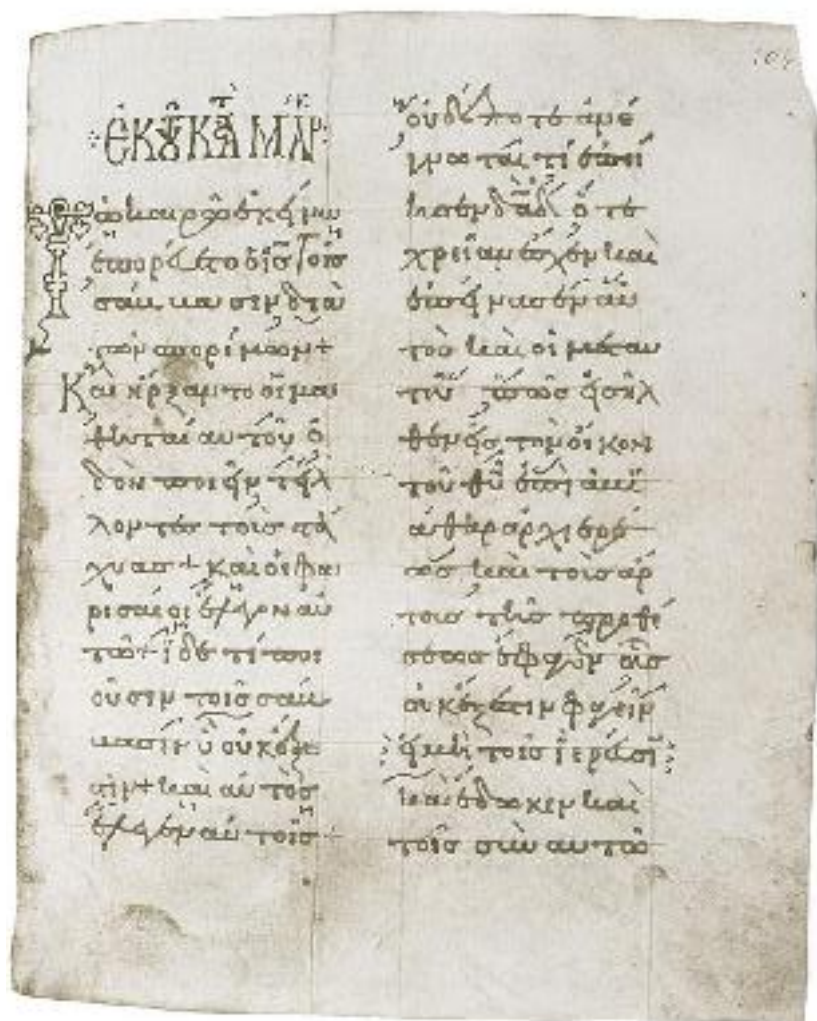 ἐκ τοῦ κατ μαρ
τῶ καιρῶ ἐκείνω
ἐπορεύετο ὁ ἰς τοῖς
σάββασιν διὰ
τῶν σπορίμων +
Καὶ ἤρξαντο οἱ μα
θηταὶ αὐτοῦ ὁ
δὸν ποιεῖν τίλ
λοντες τοὺς στά
χυας + καὶ οἱ φα
ρισαῖοι ἔλεγον αὐ
τῶ + ἴδε τί ποι
οῦσιν τοῖς σάβ
βασιν ὃ οὐκ ἔξε
στιν + καὶ αὐτὸς
ἔλεγεν αὐτοῖς +
οὐδέποτε ἀνέ
γνωτε τί ἐποίη
σεν δαδ ὅτε
χρείαν ἔσχεν καὶ
ἐπείνασεν αὐ
τὸς καὶ οἱ μετ αὐ
τοῦ πῶς εἰσῆλ
θεν εἰς τὸν οἶκον
τοῦ θυ ἐπὶ ἀβι
άθαρ ἀρχιερέ
ως καὶ τοὺς ἄρ
τους τῆς προθέ
σεως ἔφαγεν οὓς
οὐκ ἔξεστιν φαγεῖν
εἰ μὴ τοῖς ἱερεῦσι
καὶ ἔδωκεν καὶ
τοῖς σὺν αὐτῶ